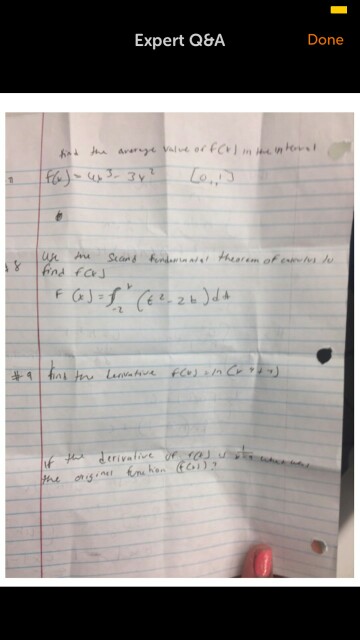 Expert Q&A
Done
find the average value of f(x) in the interval
f(x) = 4x³ - 3x² [0, 1]
8 Use the second fundamental theorem of calculus to
find F(x)
F (x) = ∫₋₂ˣ (t² - 2t) dt
#9 find the derivative f(x) = ln(
if the derivative of f(x) is
the original function (f(x))?